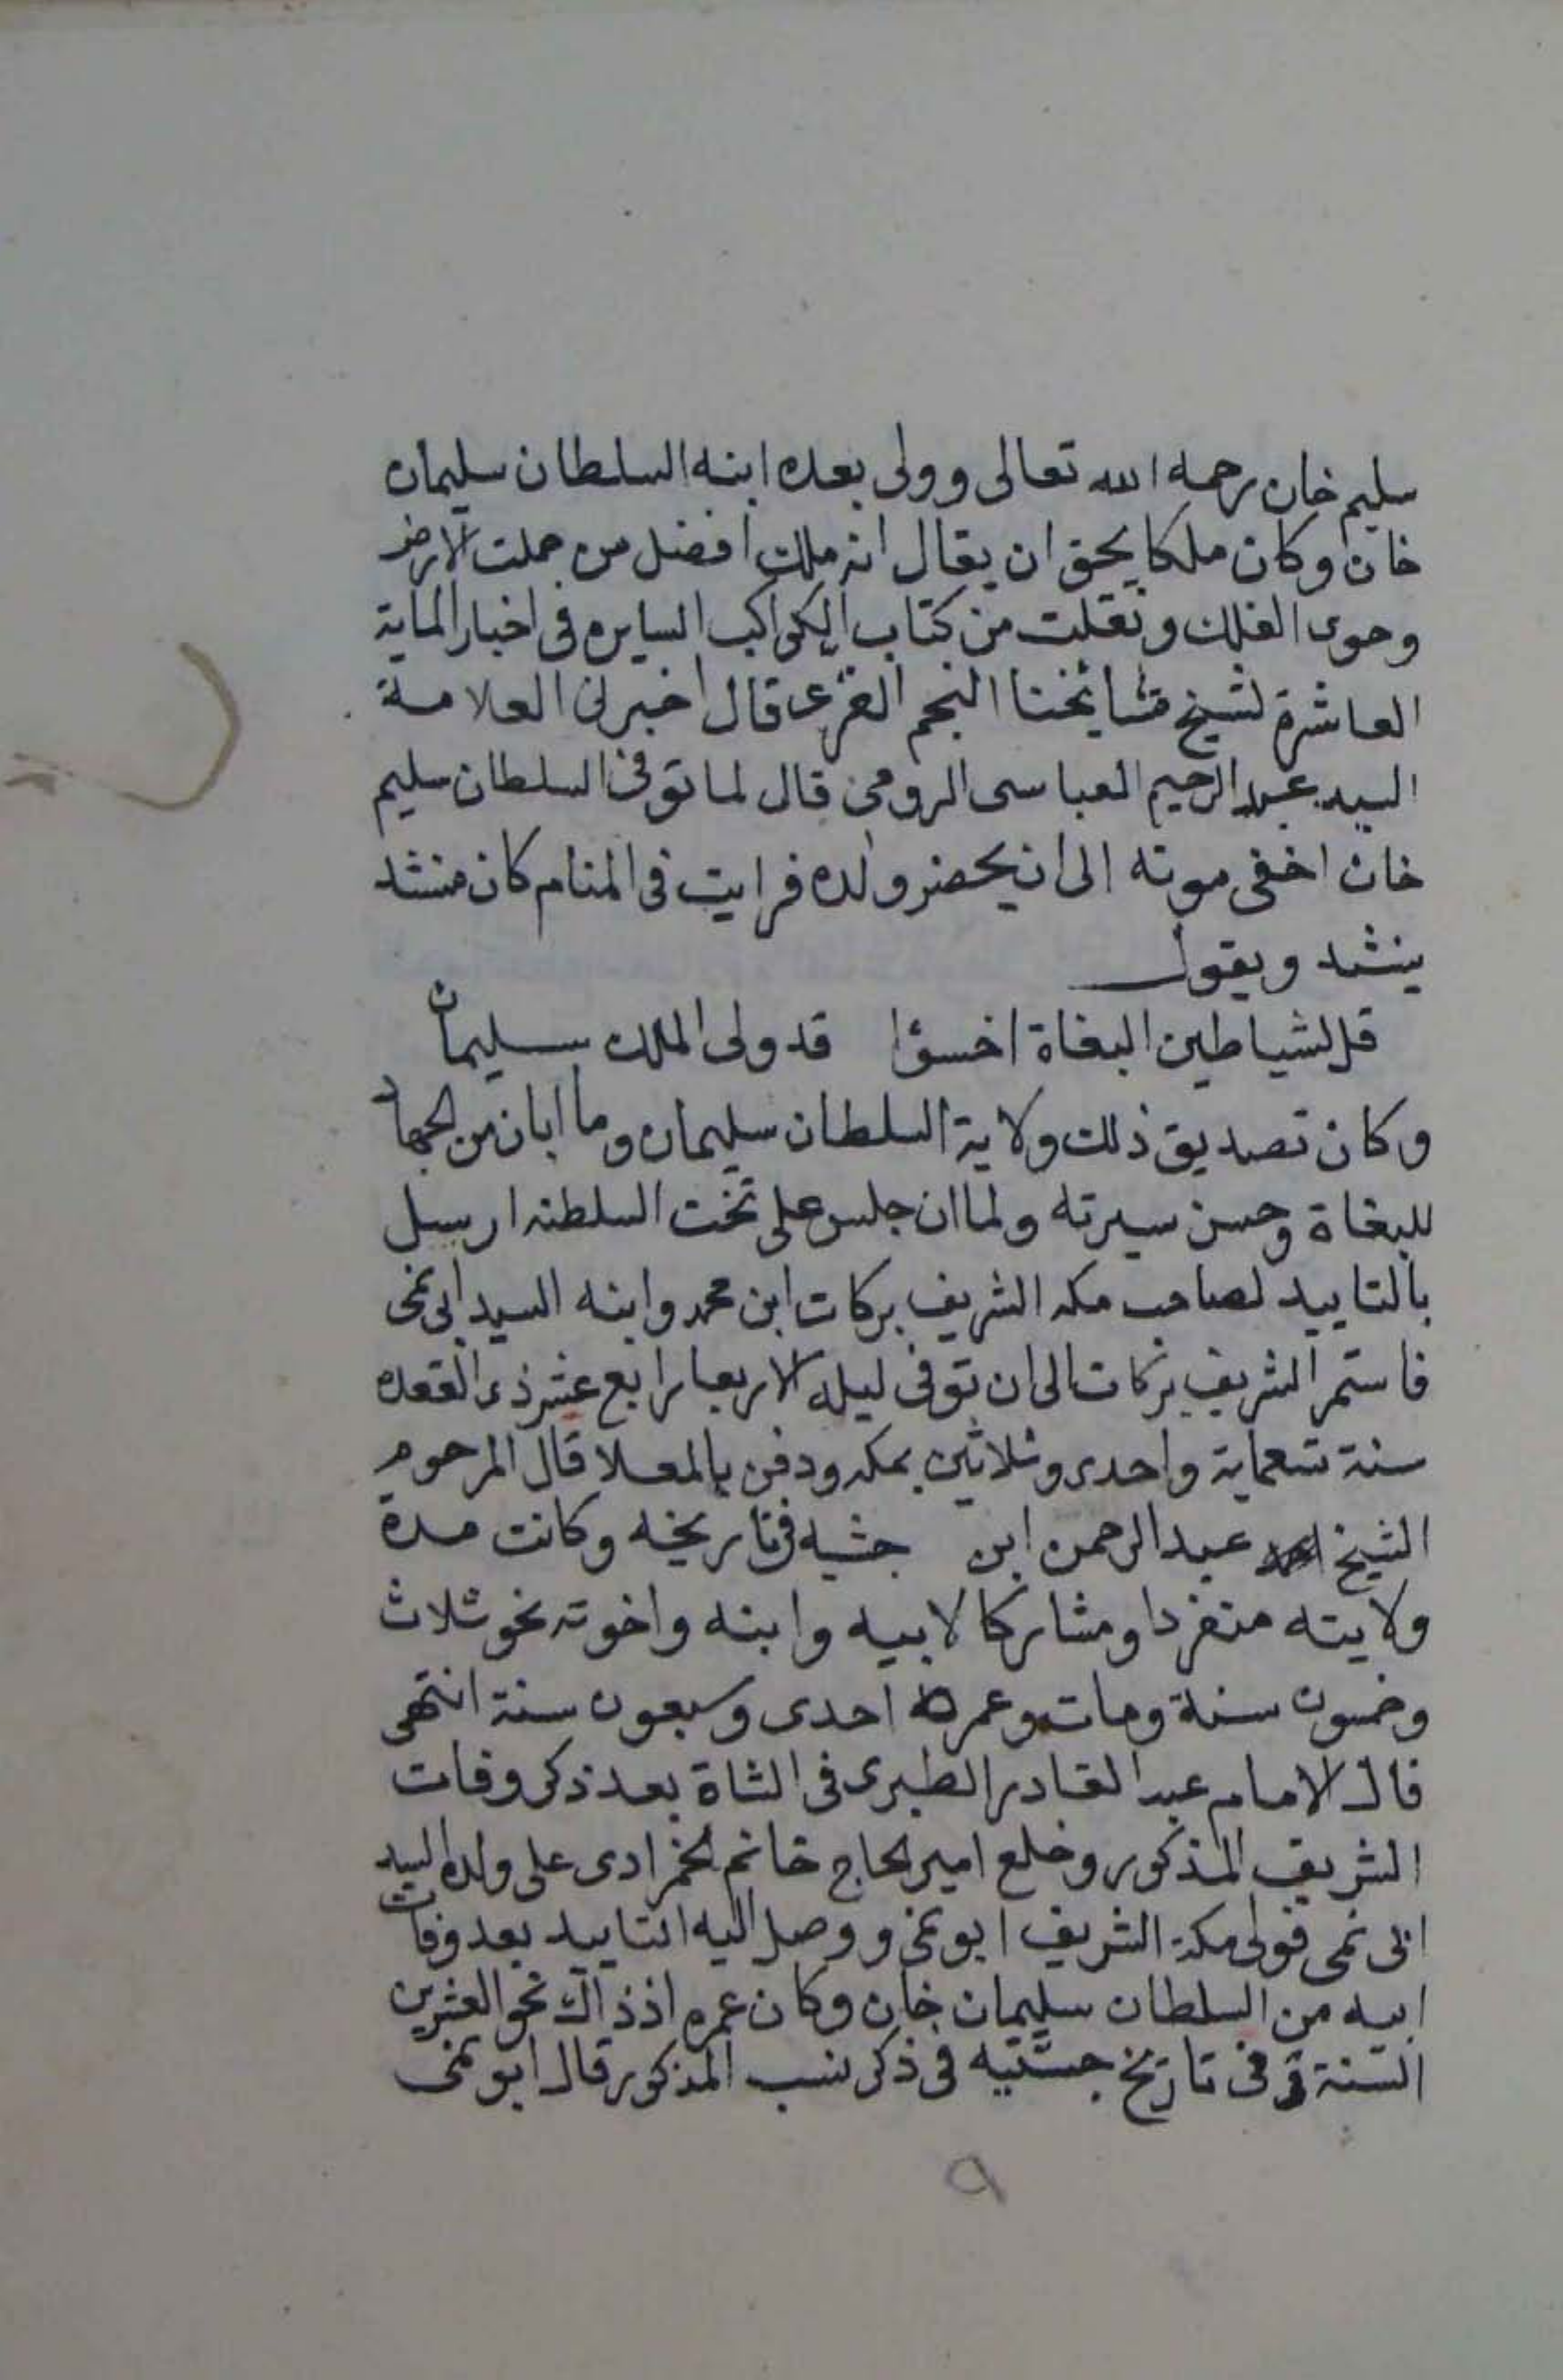 سليم خان رحمه الله تعالى وولى بعده ابنه السلطان سليمان
خان وكان ملكا يحق ان يقال انه ملك افضل من حملت الارض
وحوى الفلك ونقلت من كتاب الكواكب السايره فى اخبار الماية
العاشرة لشيخ مشايخنا النجم الغزى قال اخبرنى العلامة
السيد عبد الرحيم العباسى الرومى قال لما توفى السلطان سليم
خان اخفى موته الى ان يحضر ولده فرايت فى المنام كان منشد
ينشد ويقول
قل لشياطين البغاة اخسؤا قد ولى الملك سليمان
وكان تصديق ذلك ولاية السلطان سليمان وما ابان من الجهاد
للبغاة وحسن سيرته ولما ان جلس على تخت السلطنه ارسل
بالتاييد لصاحب مكه الشريف بركات ابن محمد وابنه السيد ابى نمى
فاستمر الشريف بركات الى ان توفى ليلة الاربعا رابع عشر ذى القعده
سنة تسعماية واحدى وثلاثين بمكه ودفن بالمعلا قال المرحوم
الشيخ عبد الرحمن ابن جثيه فى تاريخه وكانت مدة
ولايته منفردا ومشاركا لابيه وابنه واخوته نحو ثلاث
وخمسون سنة ومات وعمره احدى وسبعون سنة انتهى
قال الامام عبد القادر الطبرى فى الشاة بعد ذكر وفات
الشريف المذكور وخلع امير الحاج خانم الحمزادى على ولده السيد
ابى نمى فولى مكة الشريف ابو نمى ووصل اليه التاييد بعد وفات
ابيه من السلطان سليمان خان وكان عمره اذ ذاك نحو العشرين
السنة وفى تاريخ جستيه فى ذكر نسب المذكور قال ابو نمى
٩